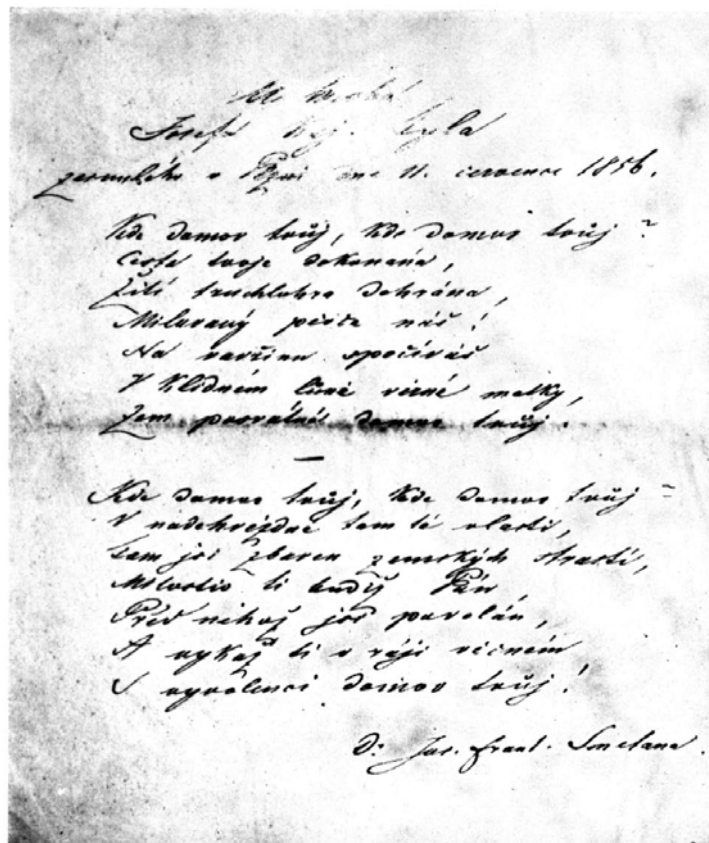 Josefa Kaj. Tyla
zesnulého v Plzni dne 11. července 1856.
Kde domov tvůj, kde domov tvůj?
Cesta tvoje dokonána,
Žití truchlohra dohrána,
Milovaný pěvče náš!
Na vavřínu spočíváš
V klidném lůně věčné matky,
Zem posvátná domov tvůj.
Kde domov tvůj, kde domov tvůj?
V nadehvězdné tam té vlasti,
Tam jsi zbaven zemských strastí,
Milostiv ti budiž Pán,
Před něhož jsi povolán,
A vykaž ti v ráji věčném
S vyvolenci domov tvůj!
Dr. Jos. Frant. Smetana.